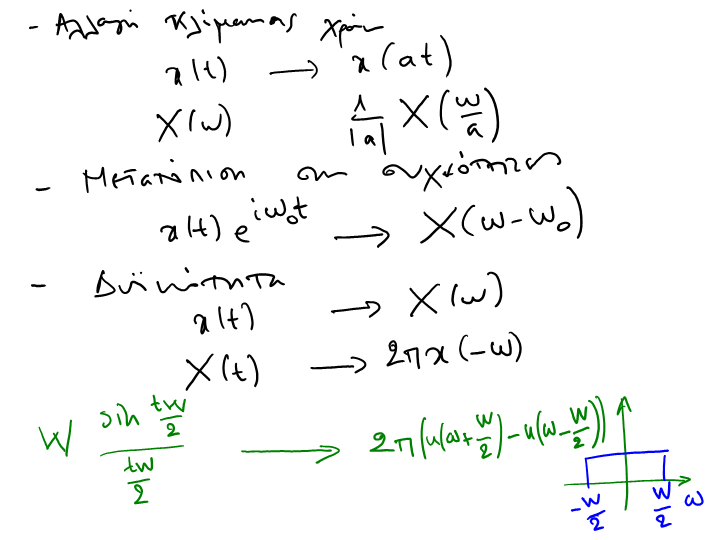 - Αλλαγή κλίμακας χρόνου
x(t) → x(at)
X(ω) 1/|a| X(ω/a)
- Μετατόπιση στη συχνότητα
x(t) e^{iω₀t} → X(ω-ω₀)
- Δυϊκότητα
x(t) → X(ω)
X(t) → 2πx(-ω)
W sin(tW/2) / (tW/2) → 2π(u(ω+W/2)-u(ω-W/2))
-W/2 W/2 ω